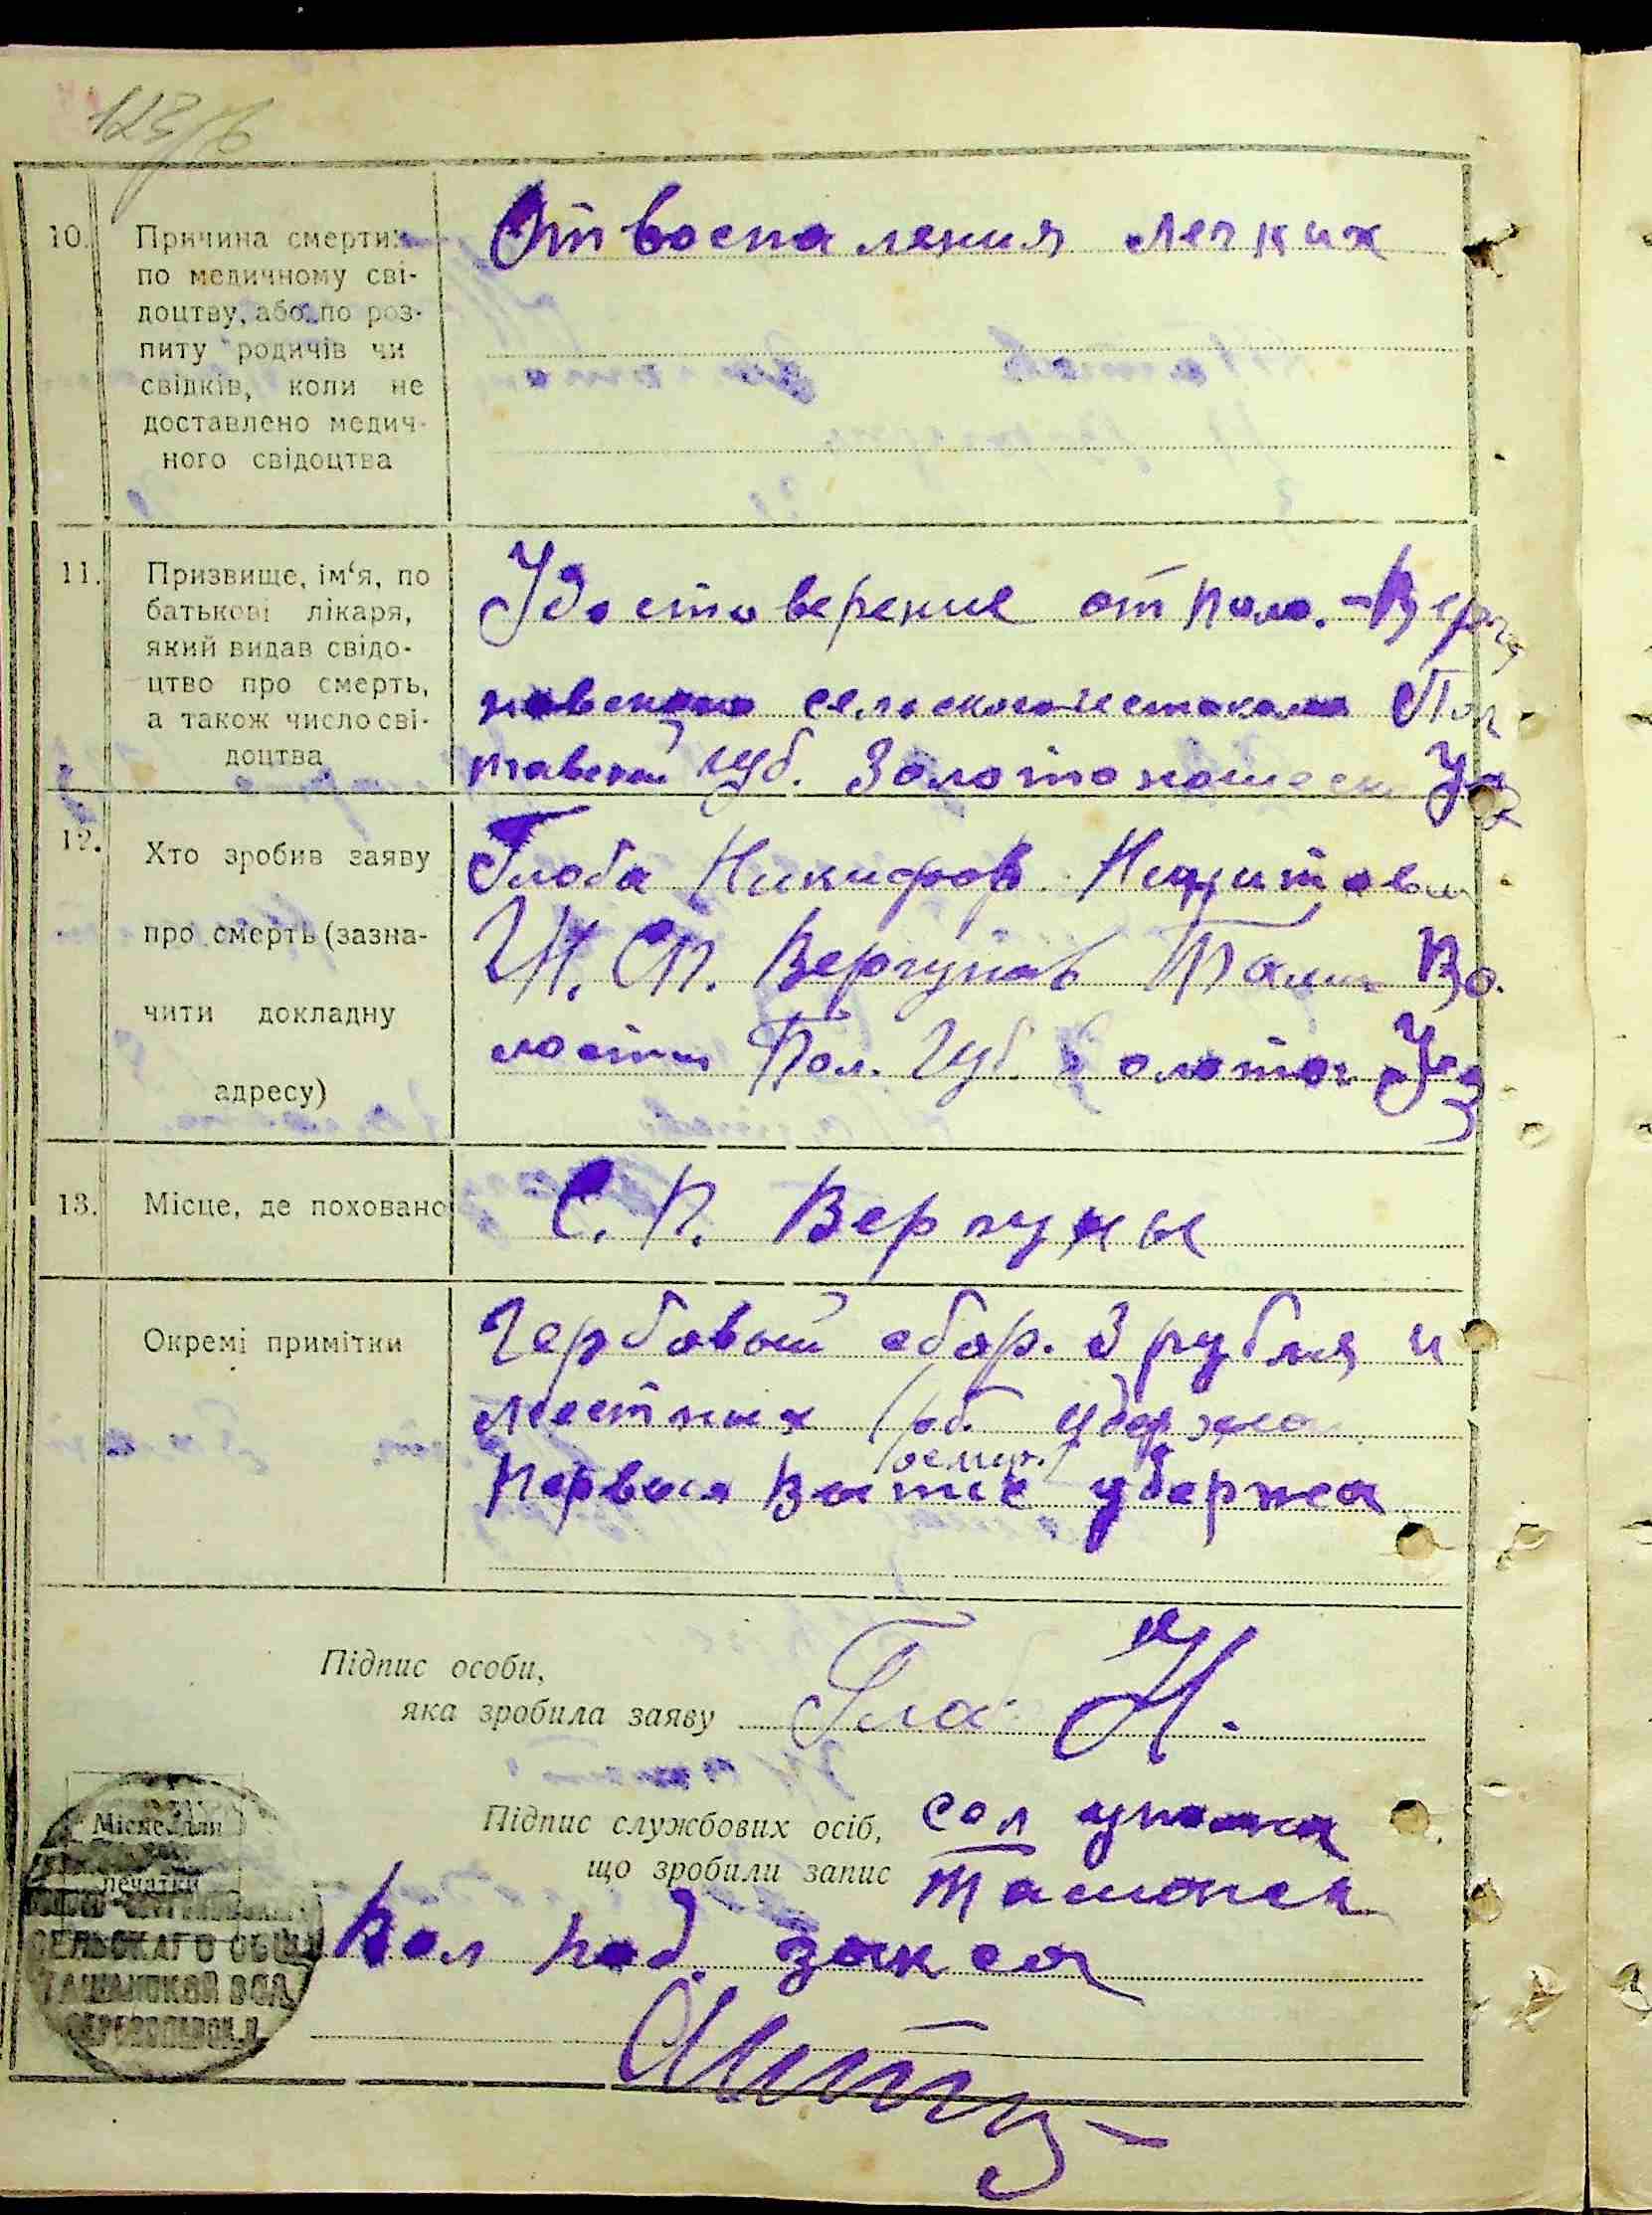 123
10.
Причина смерти:
по медичному сві-
доцтву, або по роз-
питу родичів чи
свідків, коли не
доставлено медич-
ного свідоцтва
От воспаления легких
11.
Призвище, ім‘я, по
батькові лікаря,
який видав свідо-
цтво про смерть,
а також число сві-
доцтва
Удостоверение от Поло.-Вергу
новского сельского Пол
тавской губ. Золотоношеск Уез
12.
Хто зробив заяву
про смерть (зазна-
чити докладну
адресу)
Глоба Никифор
Вергунов Ташан Во.
лости Пол. Губ. Золотон Уез
13.
Місце, де поховано
С. П. Вергуны
Окремі примітки
Гербовый сбор. 3 рубля и
местных руб. удержа
Первая удержа
Підпис особи,
яка зробила заяву
Глоб Н.
Підпис службових осіб,
що зробили запис
Ташанск
Місце для
печатки
СЕЛЬСКАГО ОБЩ
ТАШАНСКОЙ ВОЛ.
под загса